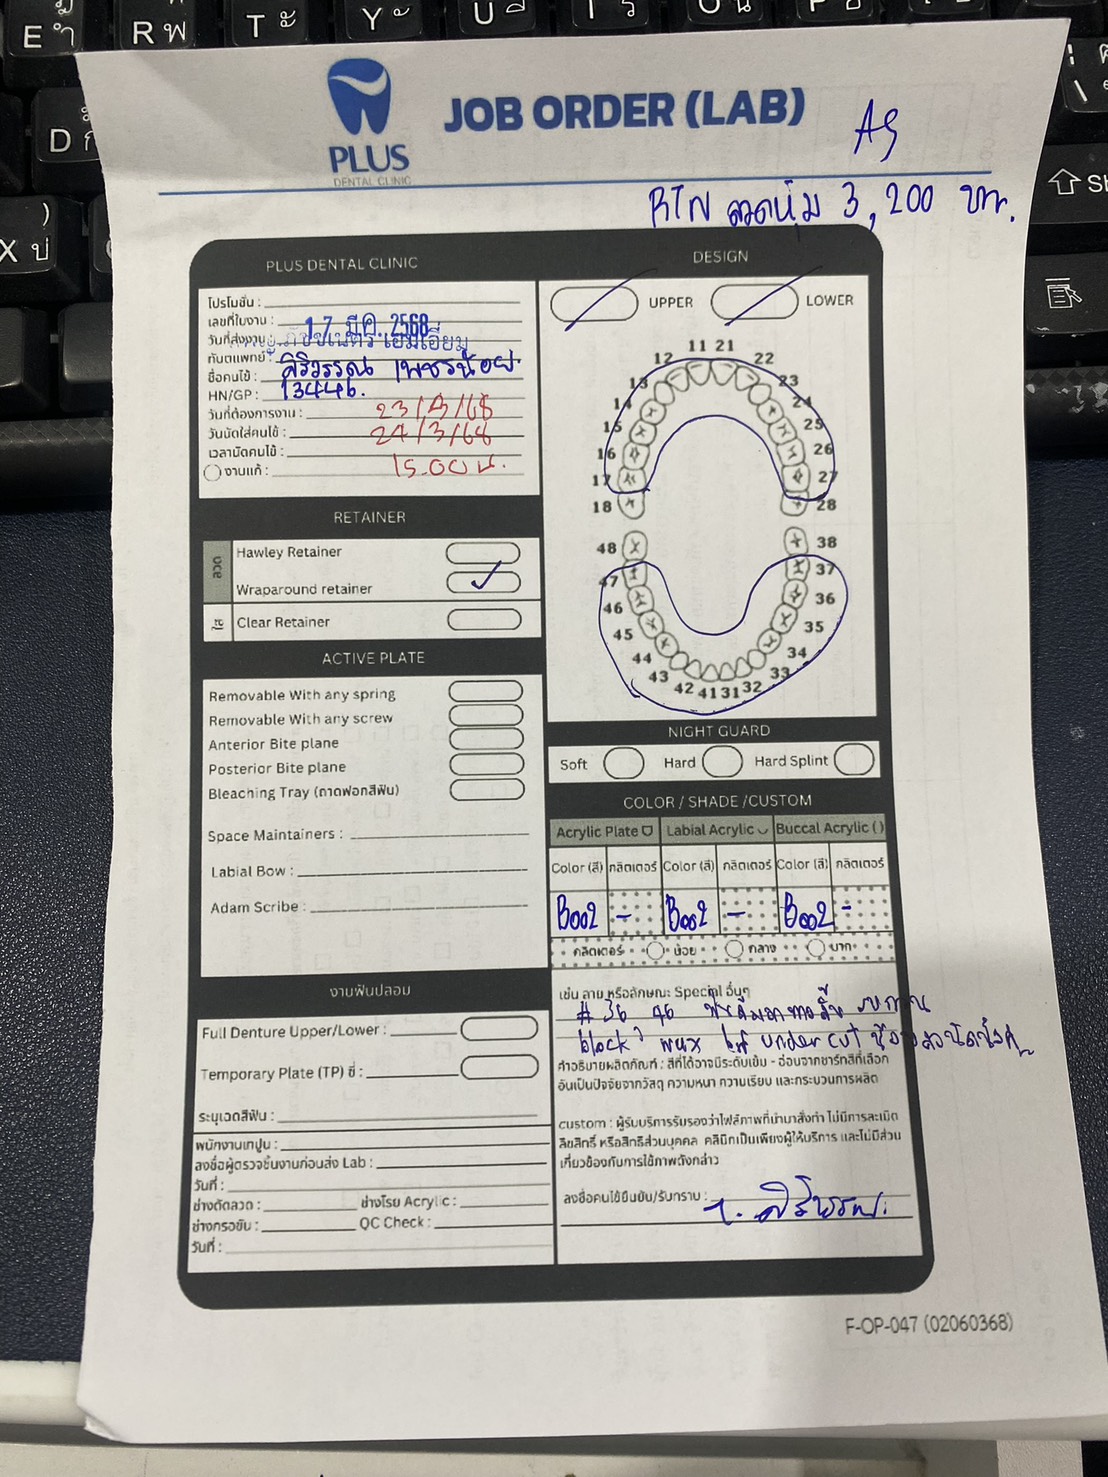 PLUS
DENTAL CLINIC
JOB ORDER (LAB)
RTN ลวดหุ้ม 3,200 บาท.
PLUS DENTAL CLINIC
โปรโมชั่น :
เลขที่ใบงาน :
วันที่ส่งงาน : 17 มี.ค. 2568
ทันตแพทย์ :
ชื่อคนไข้ : สิริวรรณ เพชรน้อย
HN/GP : 13446.
วันที่ต้องการงาน : 23/3/68
วันนัดใส่คนไข้ : 24/3/68
เวลานัดคนไข้ : 15.00 น.
งานแก้ :
RETAINER
Hawley Retainer
Wraparound retainer
Clear Retainer
ACTIVE PLATE
Removable With any spring
Removable With any screw
Anterior Bite plane
Posterior Bite plane
Bleaching Tray (ถาดฟอกสีฟัน)
Space Maintainers :
Labial Bow :
Adam Scribe :
งานฟันปลอม
Full Denture Upper/Lower :
Temporary Plate (TP) ซี่ :
ระบุเฉดสีฟัน :
พนักงานเทปูน :
ลงชื่อผู้ตรวจชิ้นงานก่อนส่ง Lab :
วันที่ :
ช่างดัดลวด : ช่างโรย Acrylic :
ช่างกรอขัด : QC Check :
วันที่ :
DESIGN
UPPER LOWER
11 21
12 22
13 23
14 24
15 25
16 26
17 27
18 28
48 38
47 37
46 36
45 35
44 34
43 33
42 41 31 32
NIGHT GUARD
Soft Hard Hard Splint
COLOR / SHADE /CUSTOM
Acrylic Plate Labial Acrylic Buccal Acrylic ( )
Color (สี) กลิตเตอร์ Color (สี) กลิตเตอร์ Color (สี) กลิตเตอร์
B002 - B002 - B002 -
กลิตเตอร์ น้อย กลาง มาก
เช่น ลาย หรือลักษณะ Special อื่นๆ
# 36 46
block wax undercut
คำอธิบายผลิตภัณฑ์ : สีที่ได้อาจมีระดับเข้ม - อ่อนจากชาร์ทสีที่เลือก
อันเป็นปัจจัยจากวัสดุ ความหนา ความเรียบ และกระบวนการผลิต
custom : ผู้รับบริการรับรองว่าไฟล์ภาพที่นำมาสั่งทำ ไม่มีการละเมิด
ลิขสิทธิ์ หรือสิทธิส่วนบุคคล คลินิกเป็นเพียงผู้ให้บริการ และไม่มีส่วน
เกี่ยวข้องกับการใช้ภาพดังกล่าว
ลงชื่อคนไข้ยืนยัน/รับทราบ :
F-OP-047 (02060368)